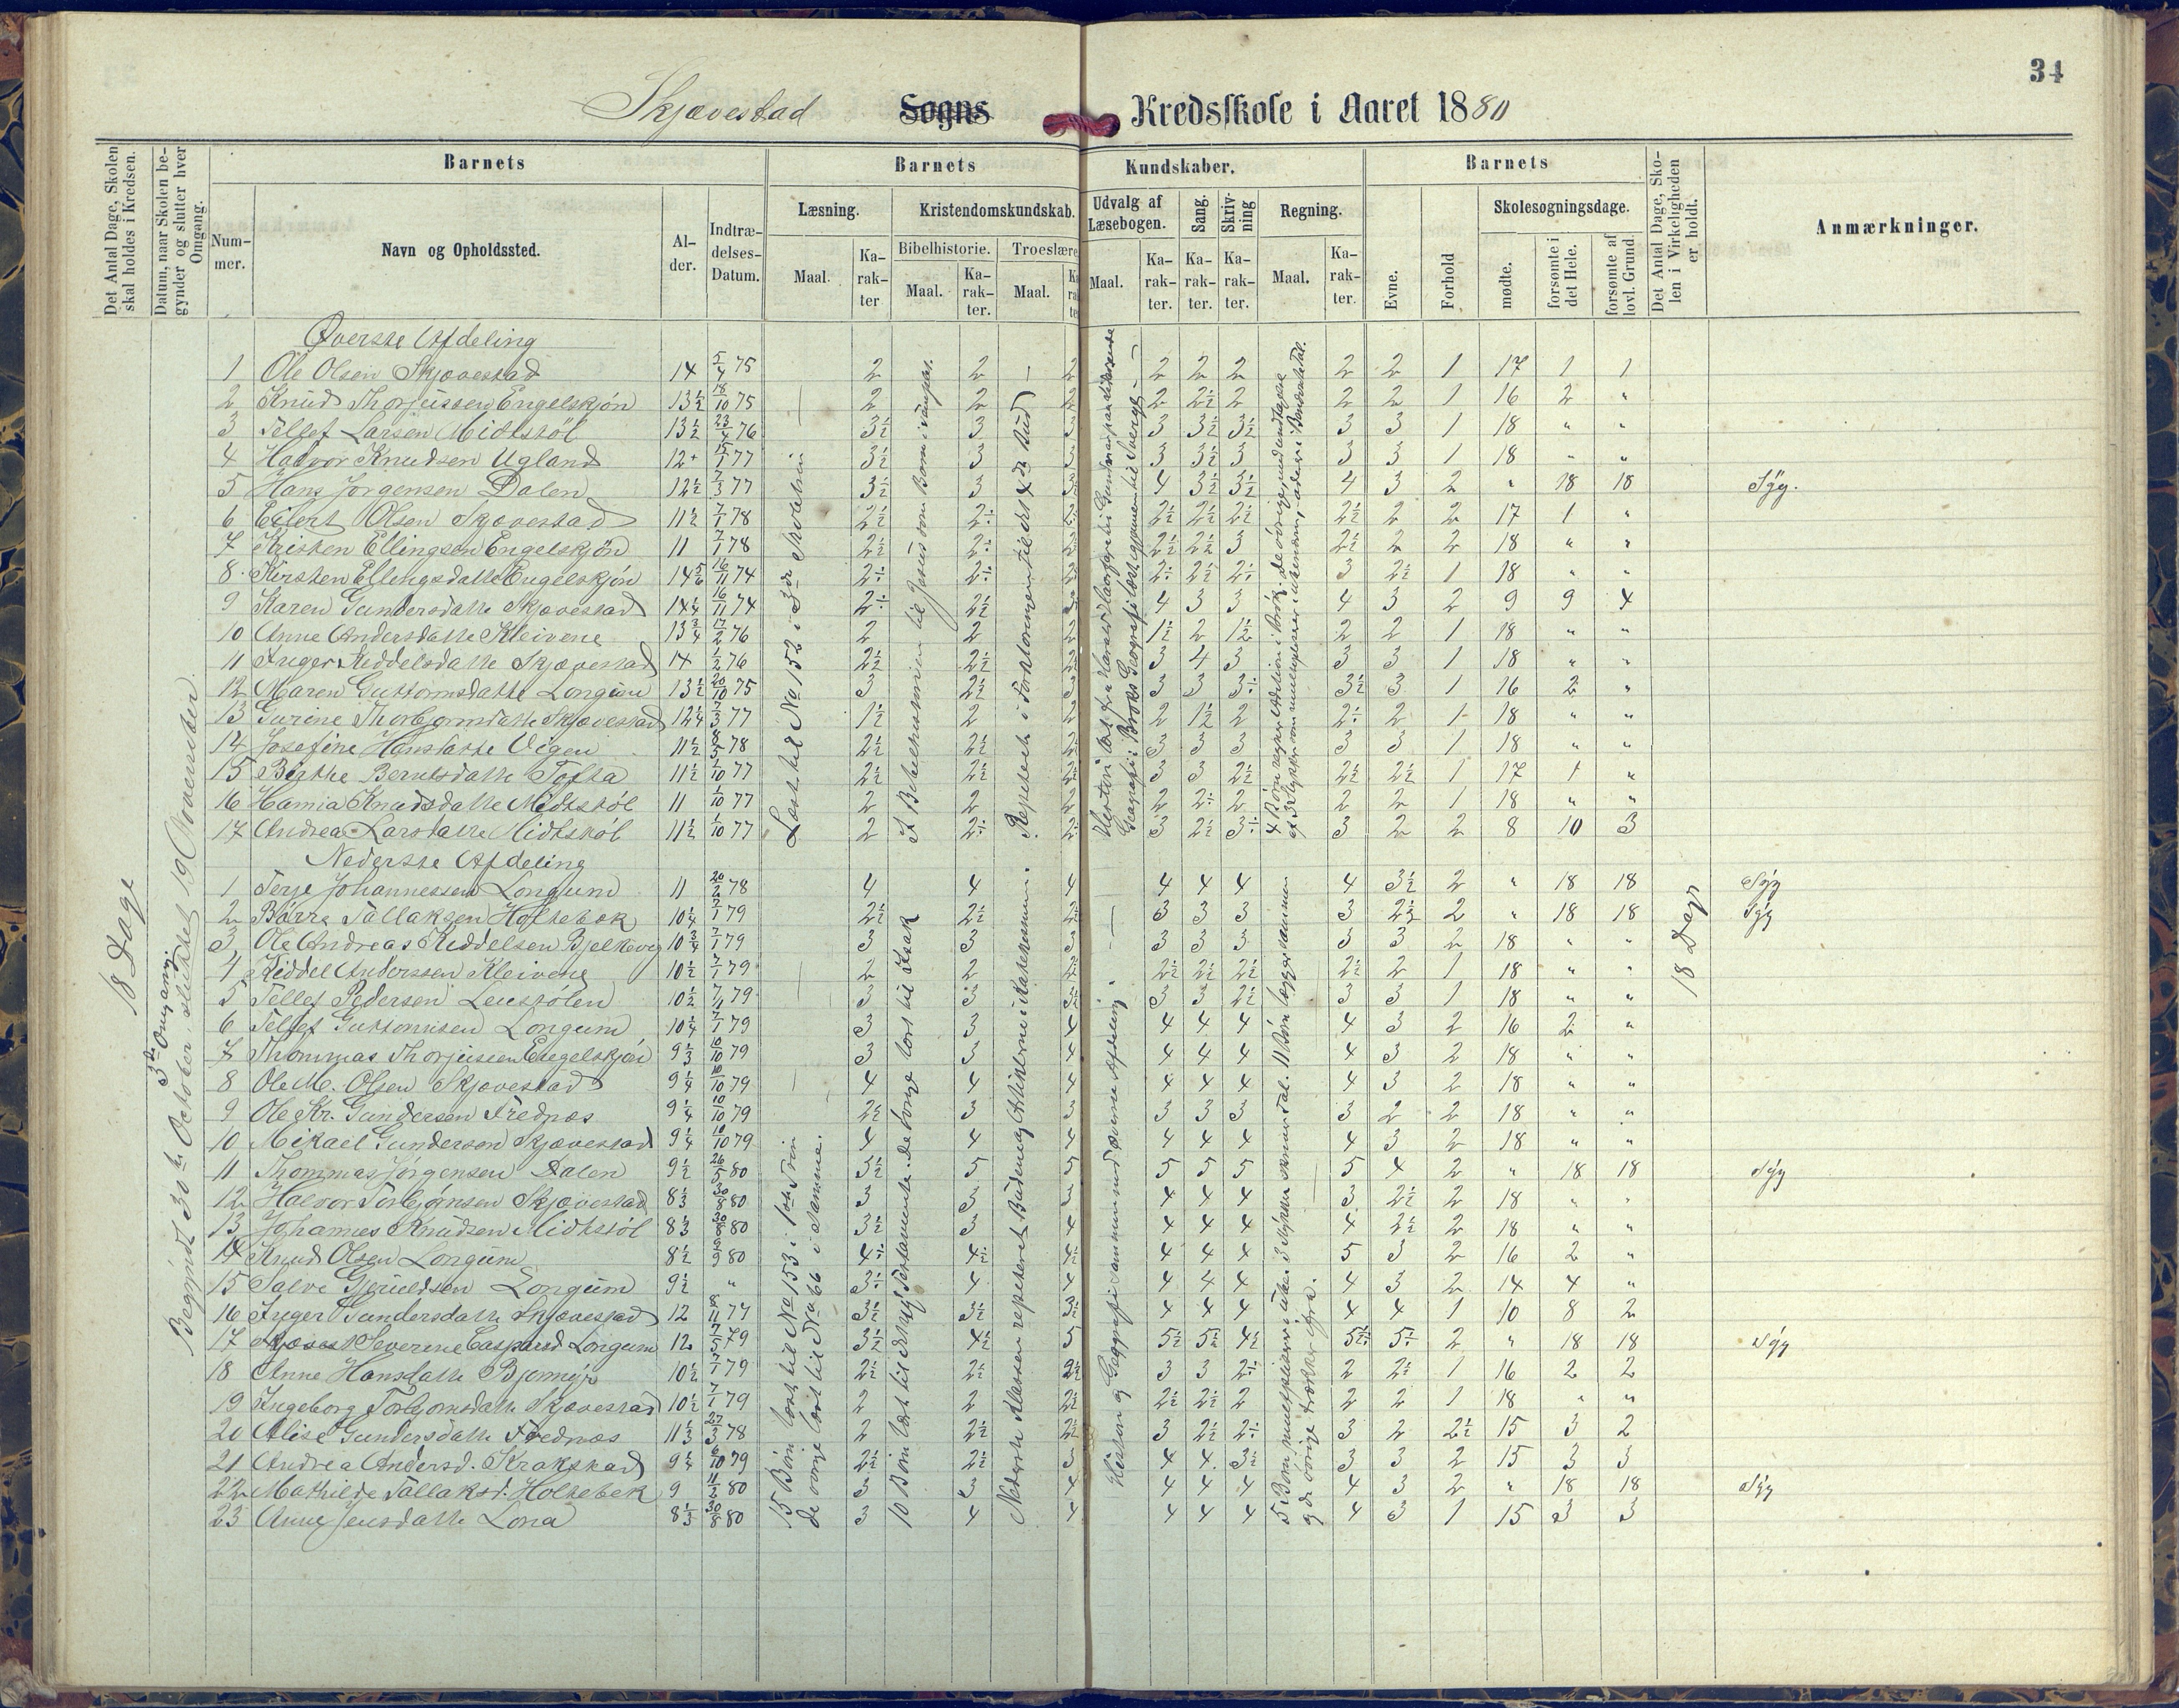 34
Skjævestad Sogns Kredsskole i Aaret 1880
Det Antal Dage, Skolen skal holdes i Kredsen.
Datum, naar Skolen begynder og slutter hver Omgang.
Barnets
Barnets Kundskaber.
Barnets
Det Antal Dage, Skolen i Virkeligheden er holdt.
Anmærkninger.
Nummer.
Navn og Opholdssted.
Alder.
Indtrædelses-Datum.
Læsning.
Kristendomskundskab.
Udvalg af Læsebogen.
Sang.
Skrivning
Regning.
Evne.
Forhold
Skolesøgningsdage.
Bibelhistorie.
Troeslære
Maal.
Karakter
Maal.
Karakter.
Maal.
Karakter
Maal.
Karakter.
Karakter.
Karakter.
Maal.
Karakter.
mødte.
forsømte i det Hele.
forsømte af lovl. Grund.
18 Dage
3die Omgang.
Begyndt 30te October, sluttet 19 November.
Øverste Afdeling
1 Ole Olsen Skjævestad 14 5/4 75 2 2 2 2 2 2 2 2 1 17 1 1
2 Knud Thorjussen Engelskjøn 13½ 18/10 75 2 2 2 2 2½ 2 2 2 1 16 2 "
3 Tellef Larsen Midtstøl 13½ 23/4 76 3½ 3 3 3 3½ 3½ 3 3 1 18 " "
4 Halvor Knudsen Ugland 12+ 15/1 77 3½ 3 3 3 3½ 3 3 3 1 18 " "
5 Hans Jørgensen Dalen 12½ 7/3 77 3½ 3 3 4 3½ 3½ 4 3 2 " 18 18 Syg.
6 Eilert Olsen Skjævestad 11½ 7/1 78 2½ 2÷ 2½ 2½ 2½ 2½ 2 2 17 1 "
7 Kristen Ellingsen Engelskjøn 11 7/1 78 2½ 2÷ 2½ 2½ 3 2½ 2 2 18 " "
8 Kirsten Ellingsdatte Engelskjøn 14 5/6 16/11 74 2÷ 2÷ 2÷ 2½ 2÷ 3 2½ 1 18 " "
9 Karen Gundersdatte Skjævestad 14¼ 16/11 74 2÷ 2½ 4 3 3 4 3 2 9 9 4
10 Anne Andersdatte Kleivene 13¾ 17/2 76 2 2 2 1½ 2 1½ 2 2 1 18 " "
11 Inger Kiddelsdatte Skjævestad 14 1/2 76 2½ 2½ 3 4 3 3 3 1 18 " "
12 Maren Guttormsdatte Longum 13½ 20/10 75 3 2½ 3 3 3 3÷ 3½ 3 1 16 2 "
13 Gurine Thorbjørnsdatte Skjævestad 12¼ 7/3 77 1½ 2 2 2 1½ 2 2÷ 2 1 18 " "
14 Josefine Hansdatte Vigen 11½ 8/5 78 2½ 2½ 3 3 3 3 3 1 18 " "
15 Birthe Berntsdatte Tofta 11½ 1/10 77 2½ 2½ 3 3 2½ 2½ 2½ 1 17 1 "
16 Hamia Knudsdatte Midtstøl 11 1/10 77 2 2 2 2 2÷ 2 2 2 1 18 " "
17 Andrea Larsdatte Midtstøl 11½ 1/10 77 2 2÷ 2÷ 3 2½ 3÷ 3 2 2 8 10 3
Læst til No 152 i 3die Skoletrin
I Bibelhistorien til Jesus som Barn i Templet.
Repeteret i Forklaringen til det 4de Bud
Nederste Afdeling
1 Terje Johannessen Longum 11 20/2 78 4 4 4 4 4 4 4 3½ 2 " 18 18 Syg
2 Børre Tallaksen Holtebek 10¼ 7/1 79 2½ 2½ 2½ 3 3 3 3 2½ 2 " 18 18 Syg
3 Ole Andreas Kiddelsen Bjelkevig 10¾ 7/1 79 3 3 3 3 3 3 3 3 2 18 " "
4 Kiddel Anderssen Kleivene 10½ 7/1 79 2 2 2½ 2½ 2½ 2½ 2½ 2 1 18 " "
5 Tellef Pedersen 10½ 7/1 79 3 3 3½ 3 3 2½ 3 3 1 18 " "
6 Tellef Guttormsen Longum 10¼ 7/1 79 3 3 4 4 4 4 4 3 2 16 2 "
7 Thommas Thorjussen Engelskjøn 9⅓ 10/10 79 3 3 4 4 4 4 4 3 2 18 " "
8 Ole M. Olsen Skjævestad 9¼ 10/10 79 4 4 4 4 4 4 4 3 2 18 " "
9 Ole Kr. Gundersen Frednæs 9¼ 10/10 79 2½ 3 3 3 3 3 3 2 2 18 " "
10 Mikael Gundersen Skjævestad 9¼ 10/10 79 4 4 4 4 4 4 4 3 2 18 " "
11 Thommas Jørgensen Dalen 9½ 26/5 80 3½ 5 5 5 5 5 5 4 2 " 18 18 Syg
12 Halvor Torbjørnsen Skjævestad 8⅓ 30/8 80 3 3 3 4 4 4 3 2½ 2 18 " "
13 Johannes Knudsen Midtstøl 8⅓ 30/8 80 3½ 3 4 4 4 4 4 2½ 2 18 " "
14 Knud Olsen Longum 8½ 9/9 80 4÷ 4½ 4½ 4 4 4 5 3 2 16 2 "
15 Salve Gjeruldsen Longum 9½ " 3÷ 4 4 4 4 4 4 3 2 14 4 "
16 Inger Gundersdatte Skjævestad 12 8/11 77 3½ 3½ 3½ 4 4 4 4 4 1 10 8 2
17 Severine Caspara Longum 12 7/5 79 3½ 4½ 5 5½ 5½ 4½ 5½ 5÷ 2 " 18 18 Syg
18 Anne Hansdatte Bjønmyr 10½ 7/1 79 2½ 2½ 2½ 3 3 2÷ 2 2÷ 1 16 2 2
19 Ingeborg Torbjørnsdatte Skjævestad 10½ 7/1 79 2 2 2½ 2½ 2½ 2 2 2 1 18 " "
20 Alise Gundersdatte Frednæs 11⅓ 27/3 78 2 2½ 2½ 3 2½ 2÷ 3 2 2½ 15 3 2
21 Andrea Andersd. Krakstad 9¼ 6/10 79 2½ 2½ 3 4 4 3½ 3 3 2 15 3 3
22 Mathilde Tallaksd. Holtebek 9 11/2 80 3 3 4 4 4 4 4 3 2 " 18 18 Syg
23 Anne Jensdatte Lona 8⅓ 30/8 80 3 4 4 4 4 4 4 3 1 15 3 3
15 Børn læst til No 153 i 1ste Trin
de øvrige læst til No 66 i samme.
10 Børn læst til det nye Testamente. de øvrige læst til Isak
Nederste Klassen repeteret Budene og Artiklerne i Katekismen.
Historie og Geografi sammen med øverste Afdeling
og de øvrige trækker ifra.
18 Dage